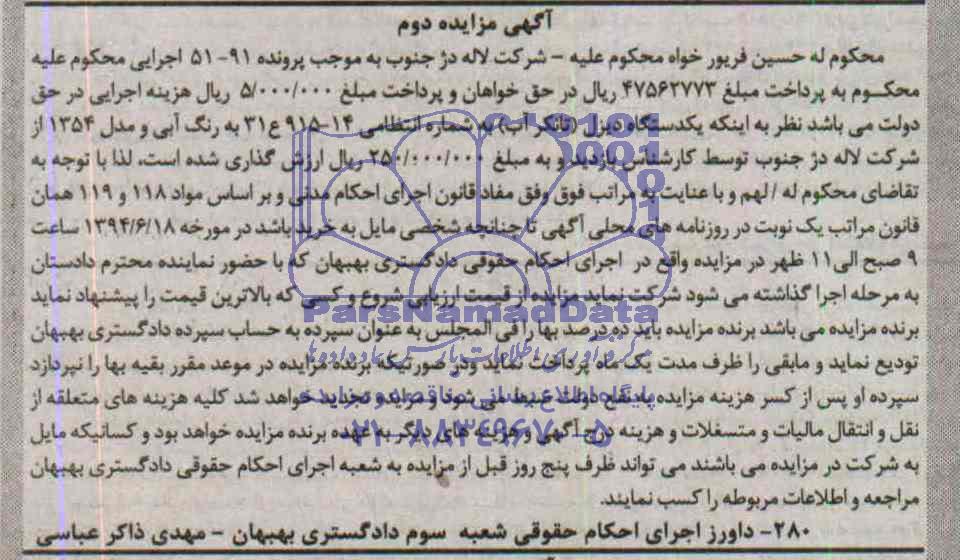 آگهی مزایده دوم
محکوم له حسین فریور خواه محکوم علیه – شرکت لاله دژ جنوب به موجب پرونده ۹۱-۵۱ اجرایی محکوم علیه
محکوم به پرداخت مبلغ ۴۷۵۶۲۷۷۳ ریال در حق خواهان و پرداخت مبلغ ۵/۰۰۰/۰۰۰ ریال هزینه اجرایی در حق
دولت می باشد نظر به اینکه یکدستگاه دیزل (تانکر آب) به شماره انتظامی ۱۴-۹۱۵ع۳۱ به رنگ آبی و مدل ۱۳۵۴ از
شرکت لاله دژ جنوب توسط کارشناس بازدید و به مبلغ ۲۵۰/۰۰۰/۰۰۰ ریال ارزش گذاری شده است، لذا با توجه به
تقاضای محکوم له / لهم و با عنایت به مراتب فوق وفق مفاد قانون اجرای احکام مدنی و بر اساس مواد ۱۱۸ و ۱۱۹ همان
قانون مراتب یک نوبت در روزنامه های محلی آگهی تا چنانچه شخصی مایل به خرید باشد در مورخه ۱۳۹۴/۶/۱۸ ساعت
۹ صبح الی ۱۱ ظهر در مزایده واقع در اجرای احکام حقوقی دادگستری بهبهان که با حضور نماینده محترم دادستان
به مرحله اجرا گذاشته می شود شرکت نماید مزایده از قیمت ارزیابی شروع و کسی که بالاترین قیمت را پیشنهاد نماید
برنده مزایده می باشد برنده مزایده باید ده درصد بها را فی المجلس به عنوان سپرده به حساب سپرده دادگستری بهبهان
تودیع نماید و مابقی را ظرف مدت یک ماه پرداخت نماید ودر صورتیکه برنده مزایده در موعد مقرر بقیه بها را نپردازد
سپرده او پس از کسر هزینه مزایده به نفع دولت ضبط می شود و مزایده تجدید خواهد شد کلیه هزینه های متعلقه از
نقل و انتقال مالیات و متسغلات و هزینه درج آگهی و هزینه های دیگر به عهده برنده مزایده خواهد بود و کسانیکه مایل
به شرکت در مزایده می باشند می تواند ظرف پنج روز قبل از مزایده به شعبه اجرای احکام حقوقی دادگستری بهبهان
مراجعه و اطلاعات مربوطه را کسب نمایند.
۲۸۰- داورز اجرای احکام حقوقی شعبه سوم دادگستری بهبهان – مهدی ذاکر عباسی
ParsNamadData
۰۲۱-۸۸۳۴۹۶۷۰-۵